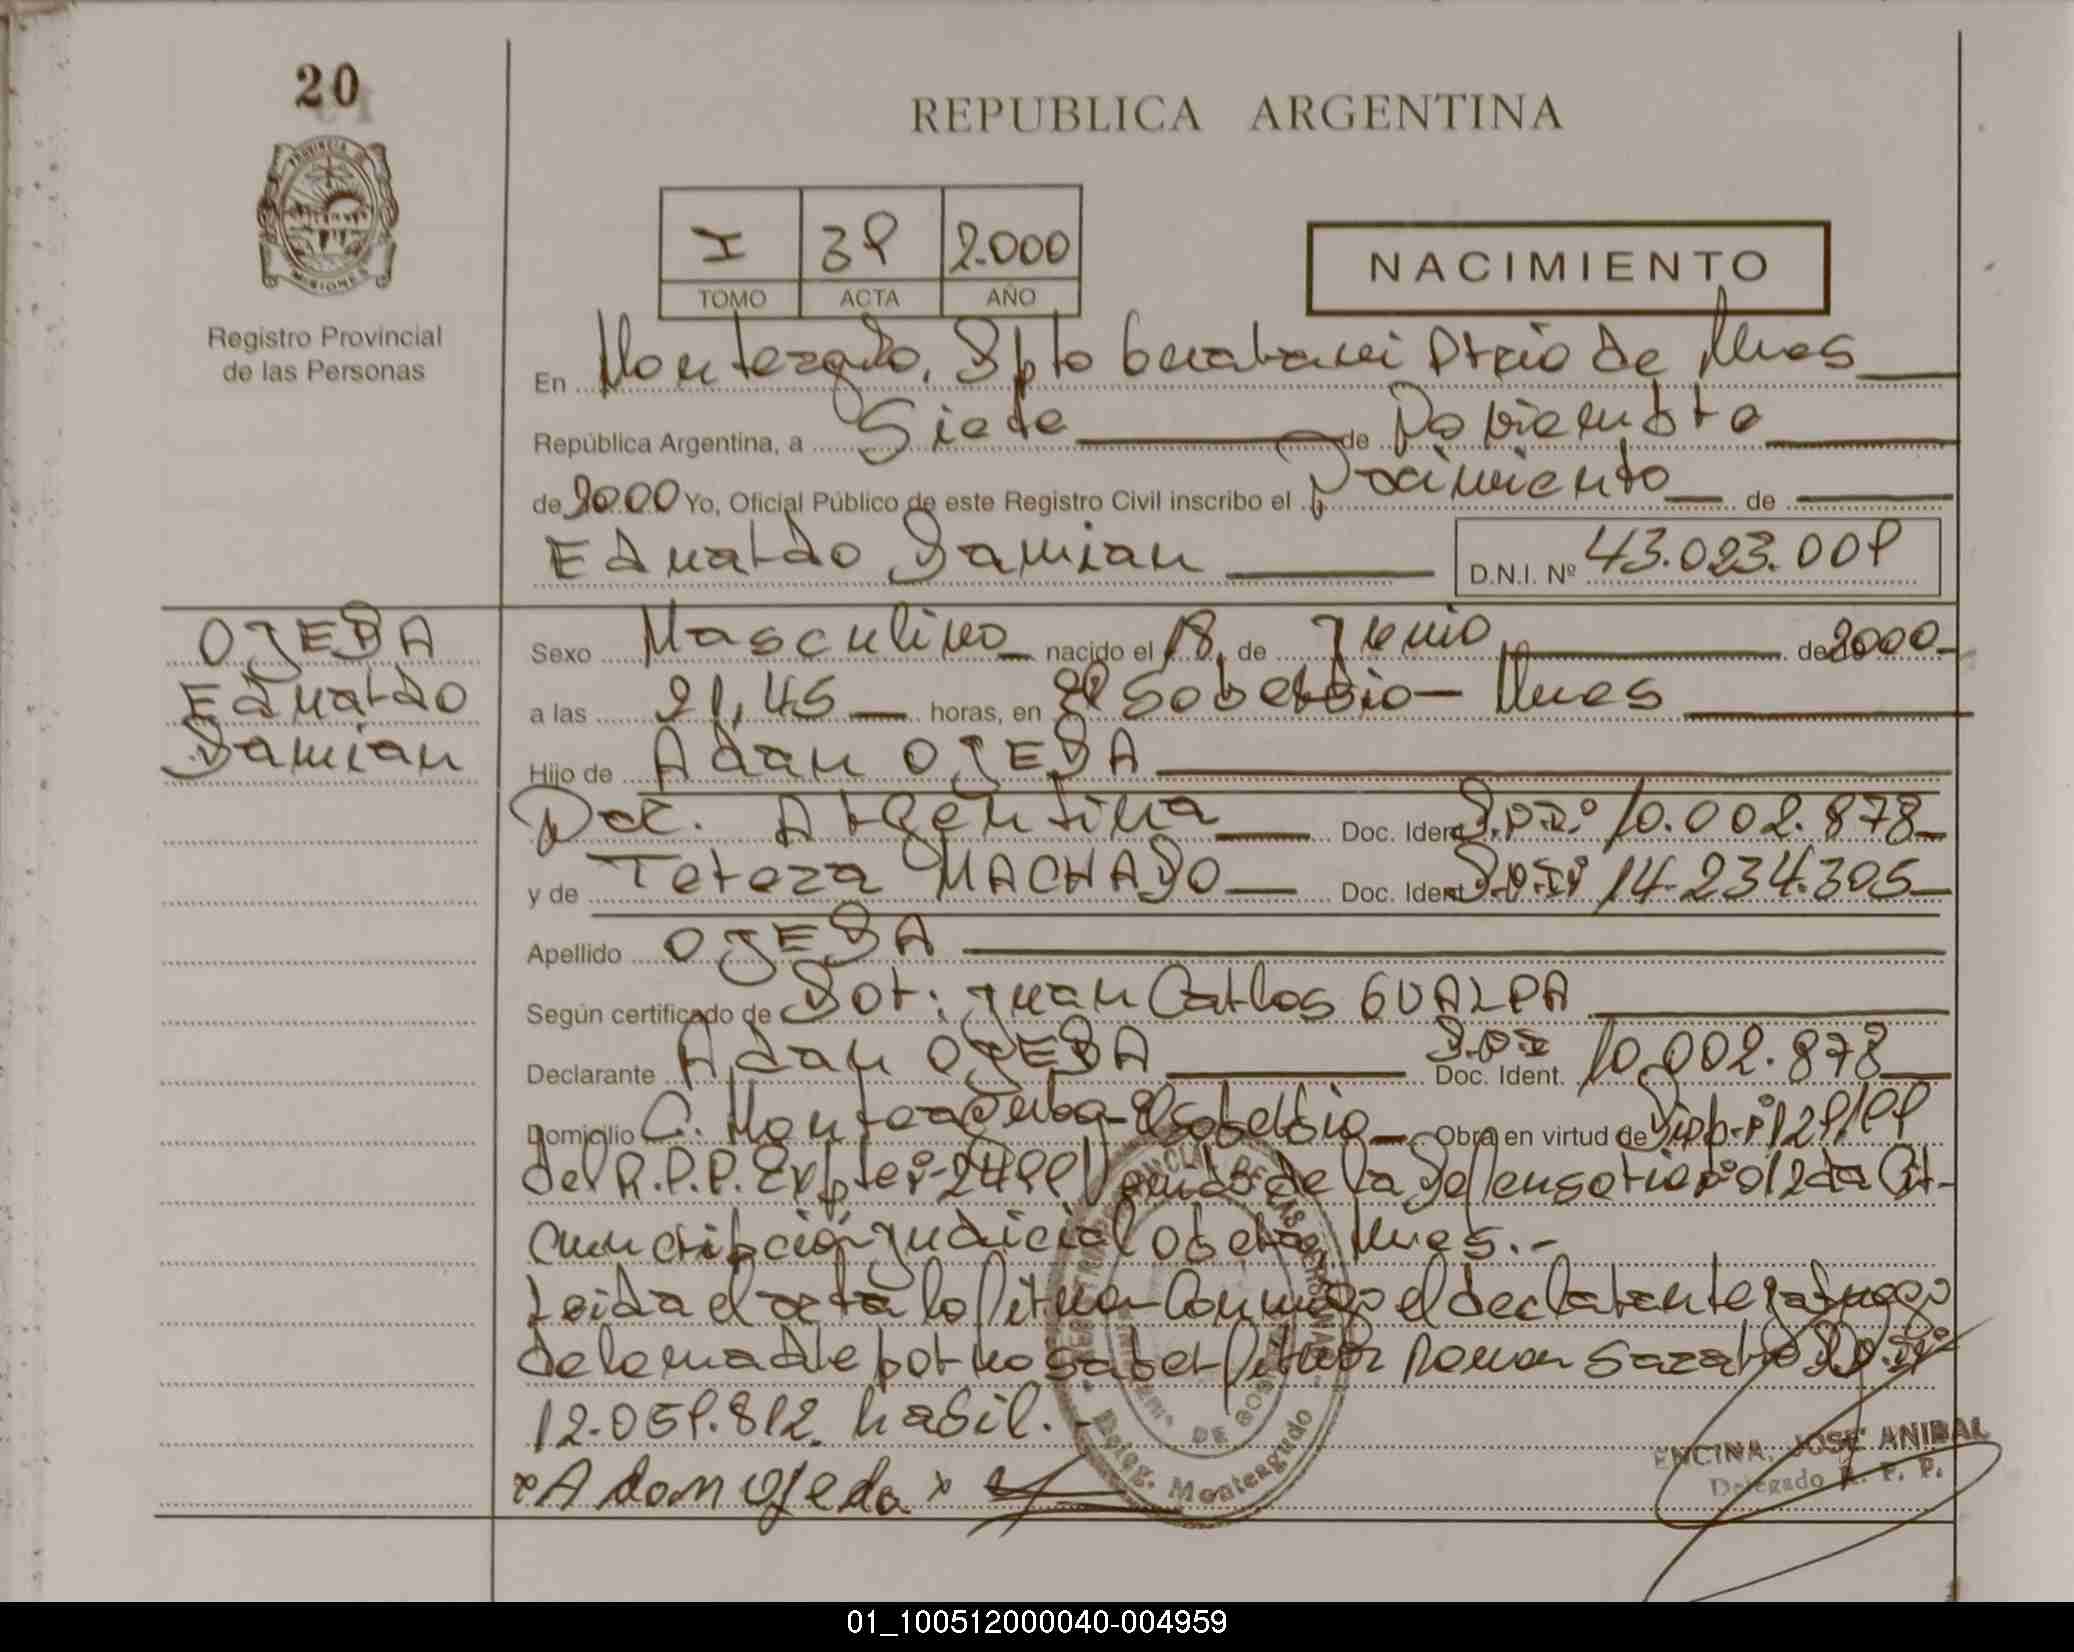 20
REPUBLICA ARGENTINA
PROVINCIA DE
MISIONES
Registro Provincial
de las Personas
I 39 2.000
TOMO ACTA AÑO
NACIMIENTO
En Monteagudo, Dpto Guarani Pcia de Mnes
República Argentina, a Siete de Noviembre
de 2000 Yo, Oficial Público de este Registro Civil inscribo el Nacimiento de
Eduardo Damian D.N.I. Nº 43.023.009
OJEDA
Eduardo
Damian
Sexo Masculino nacido el 18 de Junio de 2000
a las 21,45 horas, en El Soberbio - Mnes
Hijo de Adan OJEDA
Nac. Argentina Doc. Ident. D.N.I. 10.002.878
y de Tereza MACHADO Doc. Ident. D.N.I. 14.234.305
Apellido OJEDA
Según certificado de Dor: Juan Carlos GUALPA
Declarante Adan OJEDA D.N.I Doc. Ident. 10.002.878
Domicilio C. Monteagudo - El Soberbio Obra en virtud de Disp. Nº 129/99
del R.P.P. Expte Nº 2499 de la Defensoria Nº 01 2da Cir-
cunscripción Judicial Obera Mnes.-
Leida el acta la firman conmigo el declarante y a ruego
de la madre por no saber firmar Ramon D.N.I.
12.059.812 habil.-
x Adan Ojeda x
Deleg. Monteagudo
ENCINA, JOSE ANIBAL
Delegado R. P. P.
01_100512000040-004959